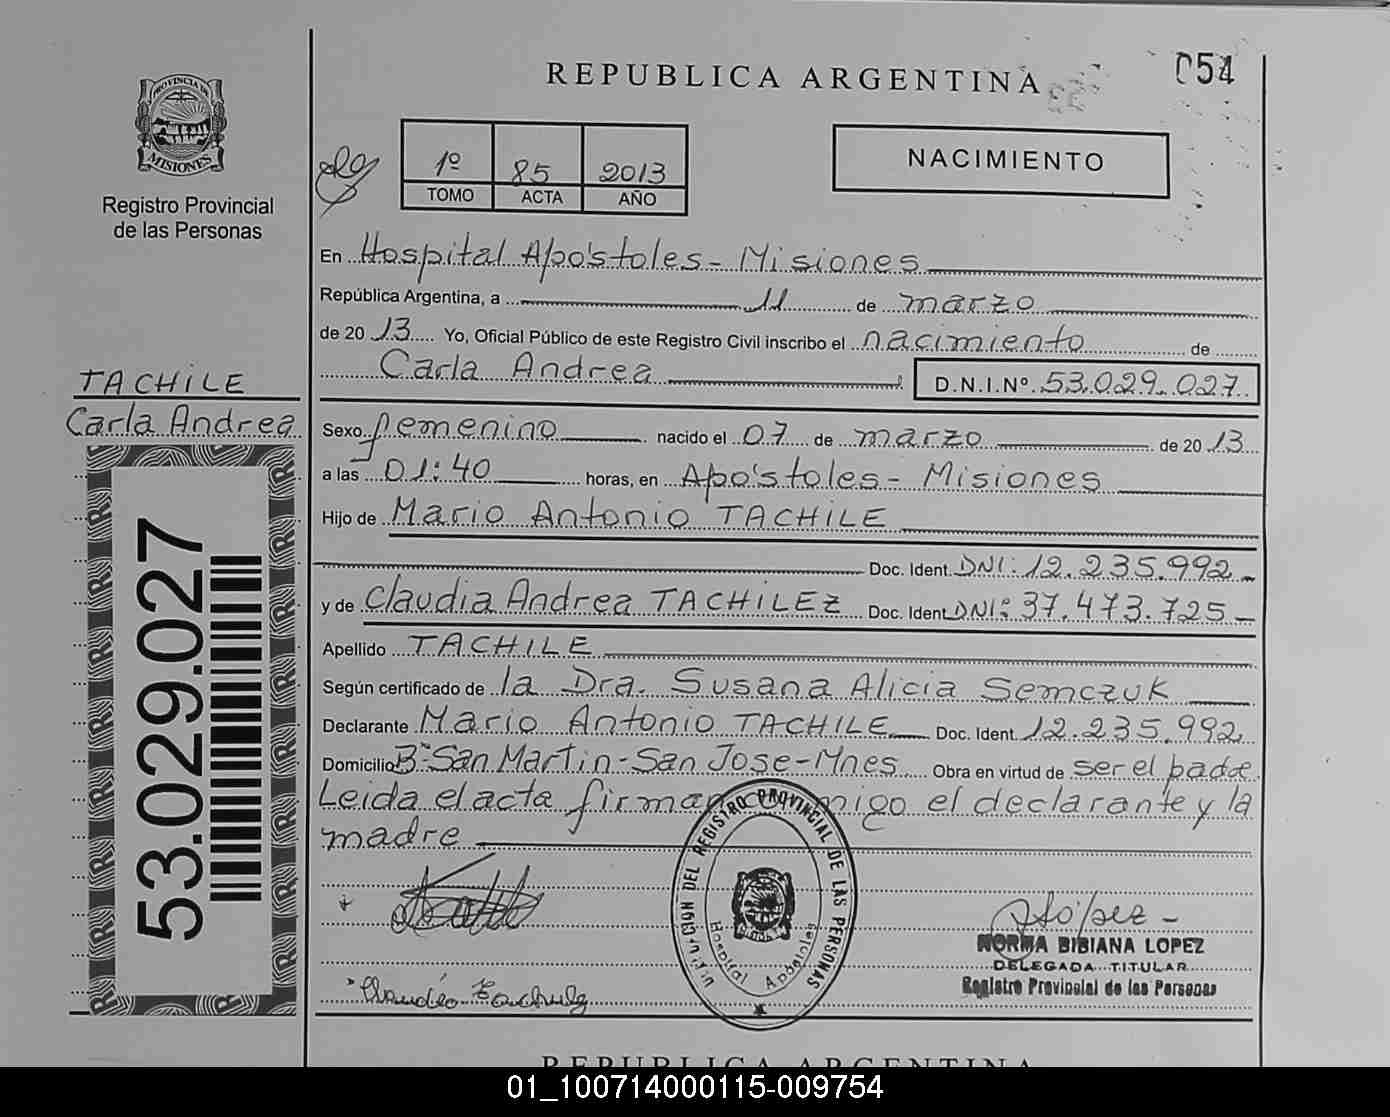 054
REPUBLICA ARGENTINA
PROVINCIA DE
MISIONES
Registro Provincial
de las Personas
1º 85 2013
TOMO ACTA AÑO
NACIMIENTO
En Hospital Apóstoles - Misiones
República Argentina, a 11 de marzo
de 2013 Yo, Oficial Público de este Registro Civil inscribo el nacimiento de
Carla Andrea D.N.I.Nº 53.029.027
TACHILE
Carla Andrea
53.029.027
Sexo femenino nacido el 07 de marzo de 2013
a las 01:40 horas, en Apóstoles - Misiones
Hijo de Mario Antonio TACHILE
Doc. Ident. DNI: 12.235.992 -
y de Claudia Andrea TACHILEZ Doc. Ident DNI: 37.473.725 -
Apellido TACHILE
Según certificado de la Dra. Susana Alicia Semczuk
Declarante Mario Antonio TACHILE Doc. Ident. 12.235.992
Domicilio Bº San Martin - San Jose - Mnes Obra en virtud de ser el padre
Leida el acta firman migo el declarante y la
madre
DEL REGISTRO PROVINCIAL DE LAS PERSONAS
Hospital Apóstoles
López -
NORMA BIBIANA LOPEZ
DELEGADA TITULAR
Registro Provincial de las Personas
REPUBLICA ARGENTINA
01_100714000115-009754